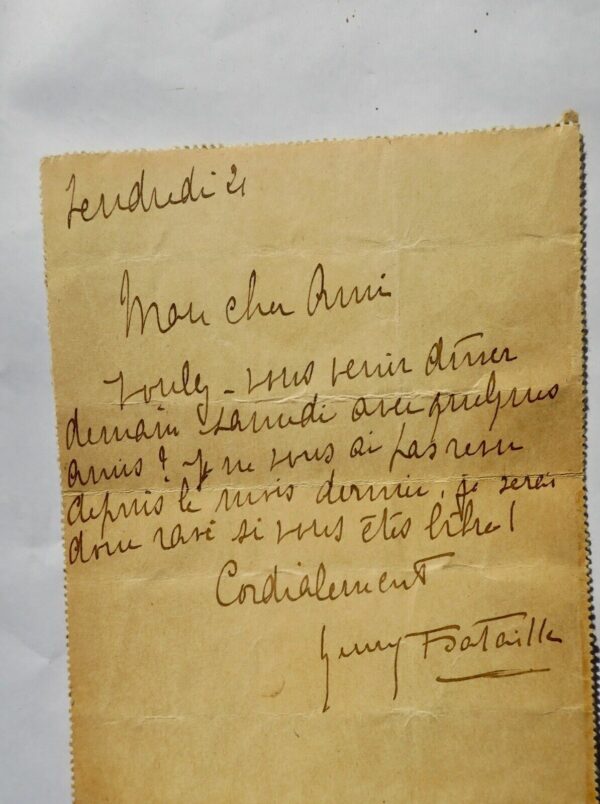 Vendredi 2
Mon cher Ami
voulez-vous venir dîner
demain samedi avec quelques
amis? Je ne vous ai pas revu
depuis le mois dernier, je serai
donc ravi si vous êtes libre!
Cordialement
Henry Bataille